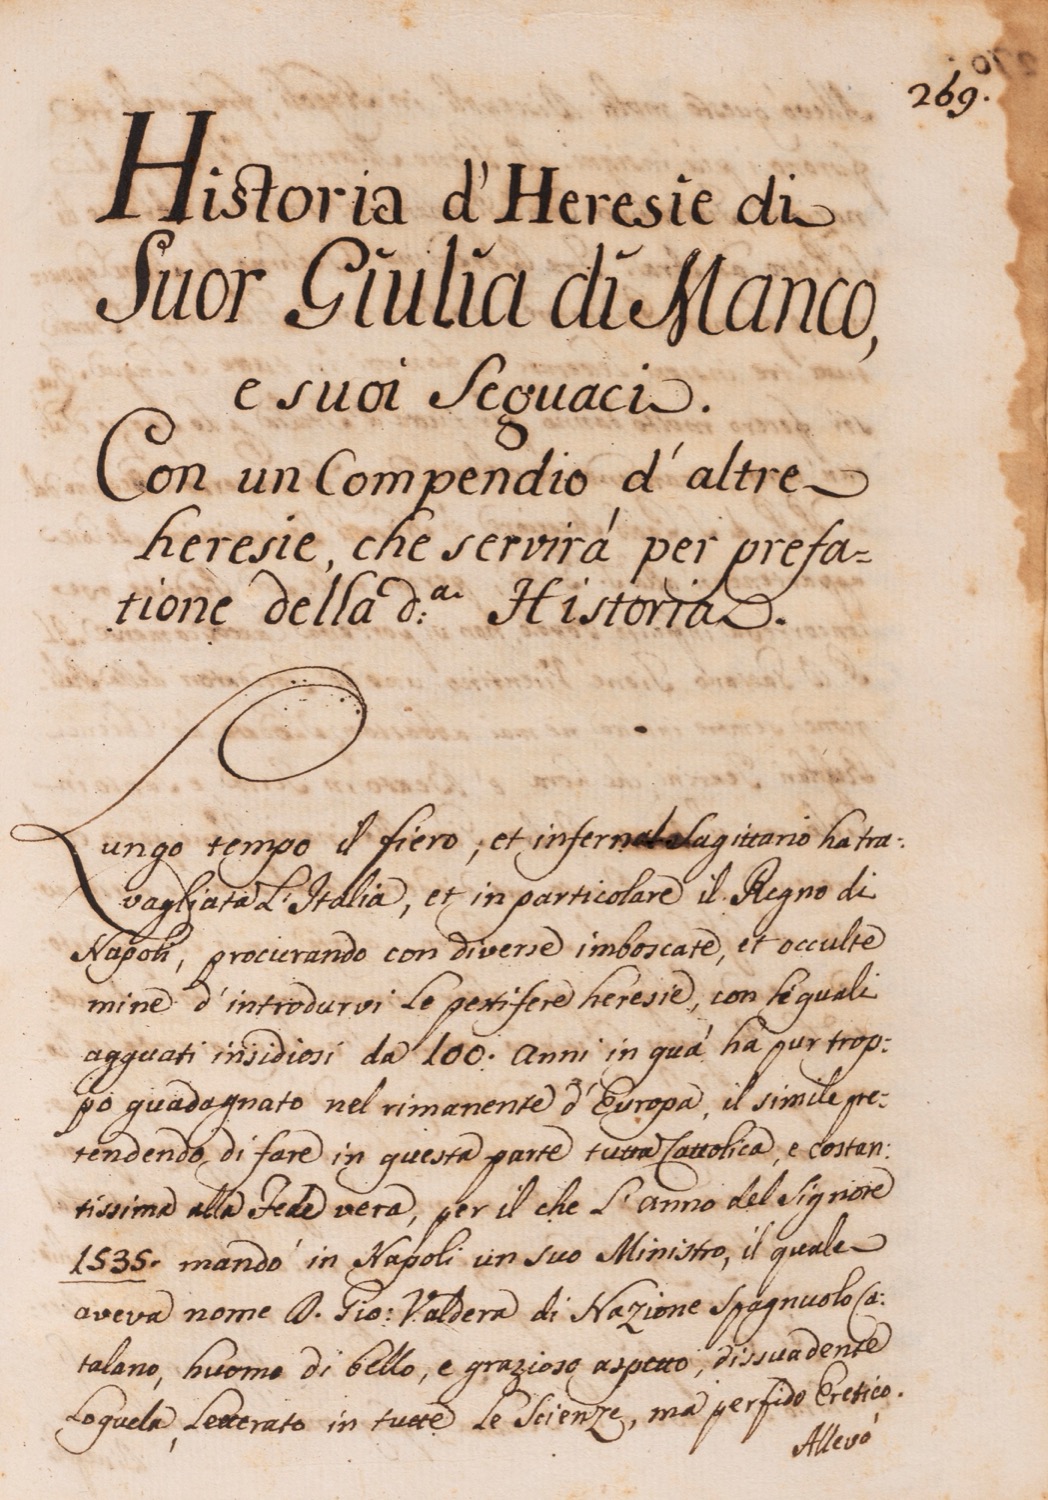 269.
Historia d' Heresie di
Suor Giulia di Manco,
e suoi Seguaci.
Con un Compendio d' altre
heresie, che servirá per prefa=
tione della d:ª Historia.
Lungo tempo il fiero, et infernal Sagittario ha tra:
vagliata L' Italia, et in particolare il Regno di
Napoli, procurando con diverse imboscate, et occulte
mine d' introdurvi le pestifere heresie, con le quali
agguati insidiosi da 100. anni in quá ha pur trop:
po guadagnato nel rimanente d' Europa, il simile pre:
tendendo di fare in questa parte tutta Cattolica, e costan:
tissima alla Fede vera, per il che L' anno del Signore
1535. mandó in Napoli un suo Ministro, il quale
aveva nome D. Gio: Valdera di Nazione Spagnuolo Ca:
talano, huomo di bello, e grazioso aspetto, dissuadente
Loquela, Letterato in tutte Le Scienze, ma perfido Eretico.
Allevó